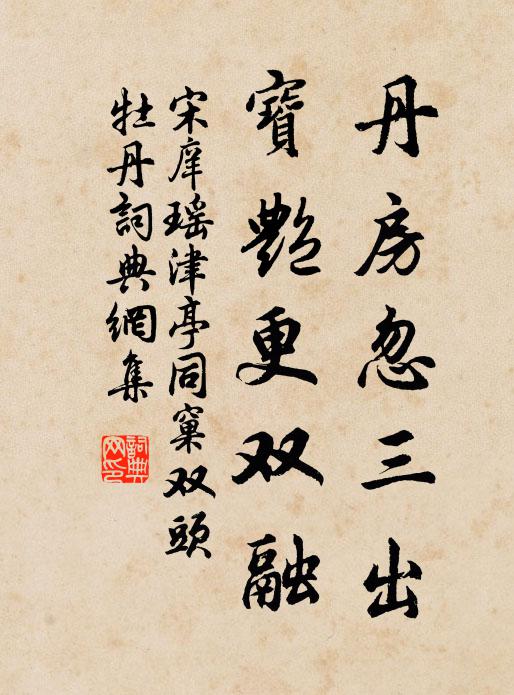 丹房忽三出
寶艷更双融
宋庠瑤津亭同窠双頭
牡丹詞典網集
詞典
网印